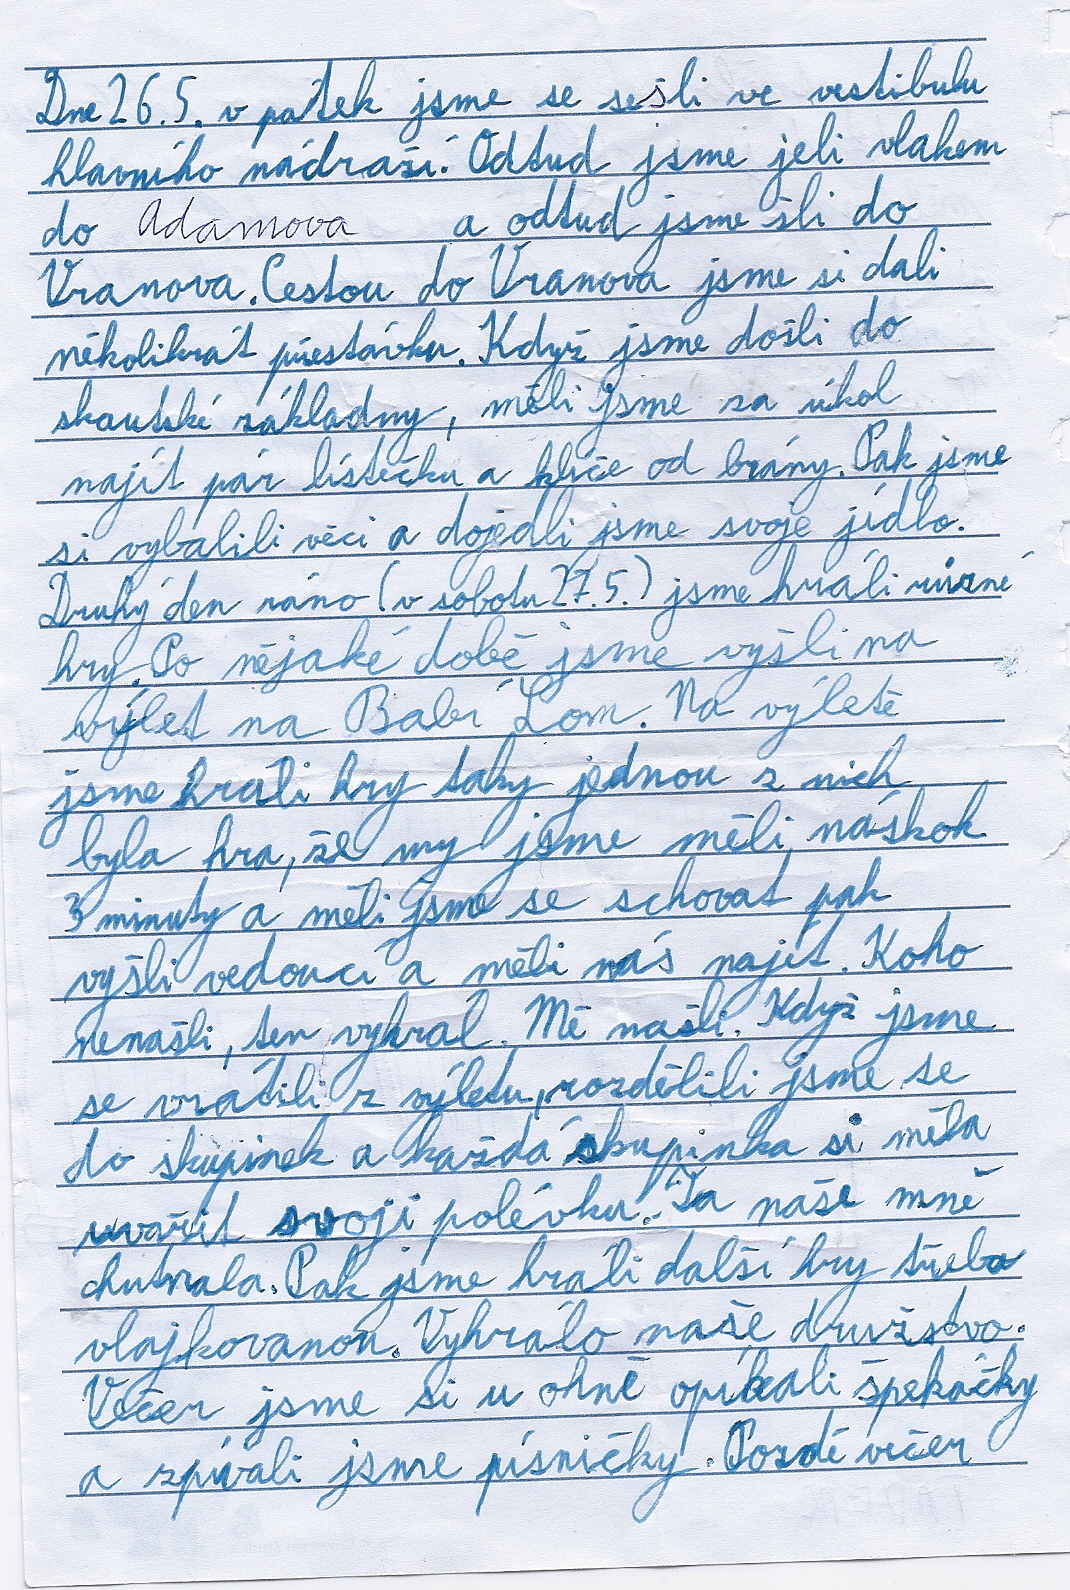 Dne 26.5. v pátek jsme se sešli ve vestibulu
hlavního nádraží. Odtud jsme jeli vlakem
do Adamova a odtud jsme šli do
Vranova. Cestou do Vranova jsme si dali
několikrát přestávku. Když jsme došli do
skautské základny, měli jsme za úkol
najít pár lístečku a klíče od brány. Pak jsme
si vybalili věci a dojedli jsme svoje jídlo.
Druhý den ráno (v sobotu 27.5.) jsme hráli různé
hry. Po nějaké době jsme vyšli na
výlet na Babí Lom. Na výletě
jsme hráli hry taky jednou z nich
byla hra, že my jsme měli náskok
3 minuty a měli jsme se schovat pak
vyšli vedoucí a měli nás najít. Koho
nenašli, ten vyhrál. Mě našli. Když jsme
se vrátili z výletu, rozdělili jsme se
do skupinek a každá skupinka si měla
uvařit svoji polévku. Ta naše mně
chutnala. Pak jsme hráli další hry třeba
vlajkovanou. Vyhrálo naše družstvo.
Večer jsme si u ohně opíkali špekáčky
a zpívali jsme písničky. Pozdě večer